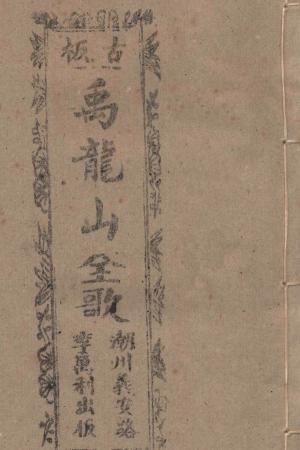 古板
禹龍山全歌
潮州義安路
李萬利出版